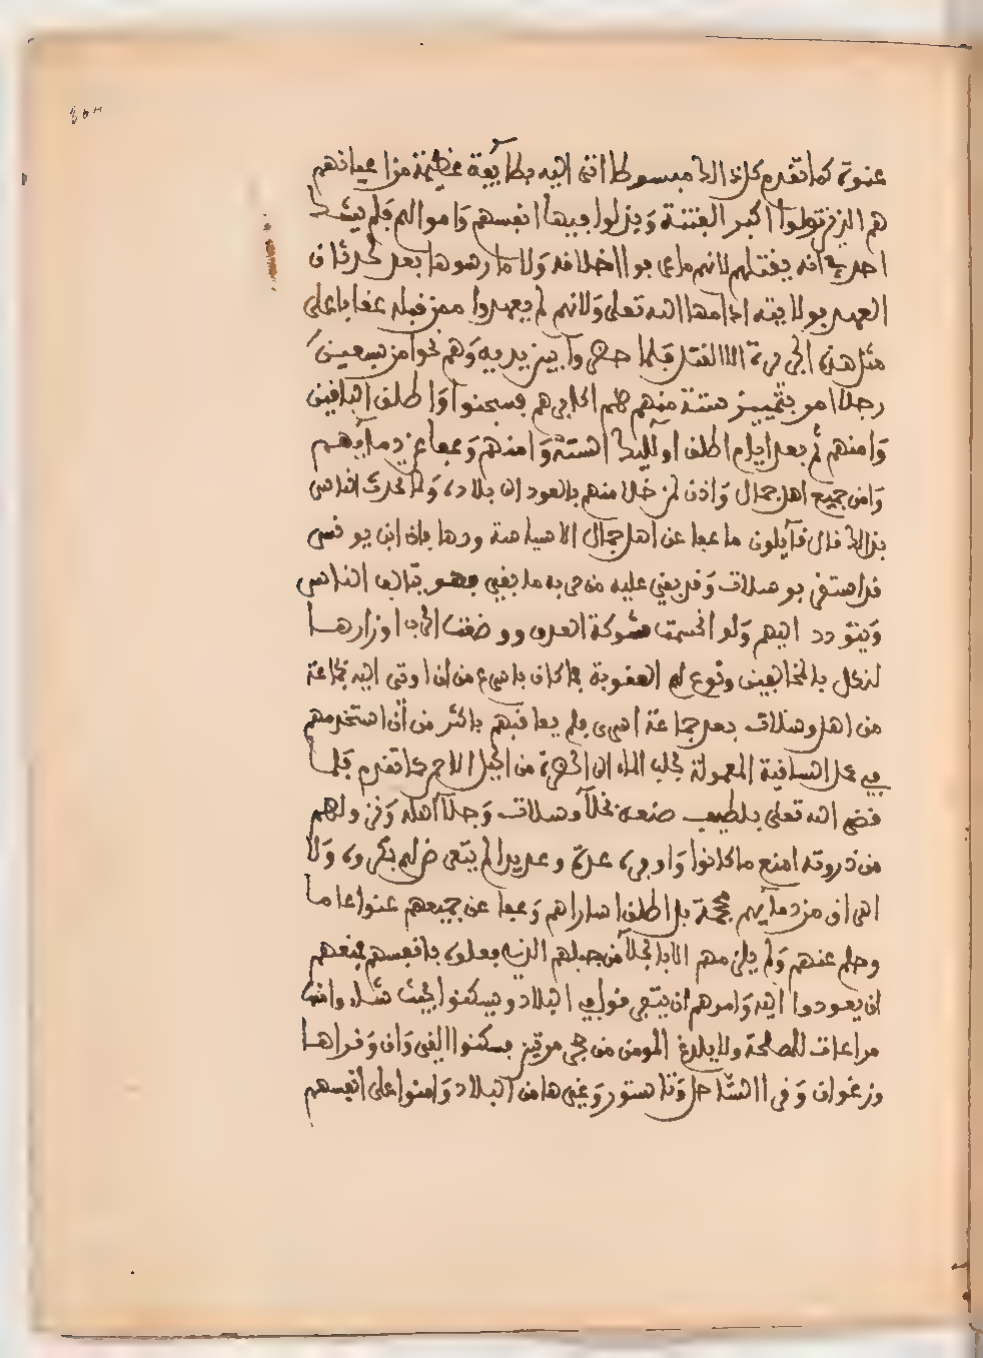 عنوة كما تقدم كل ذالك مبسوطا اتى اليه بطايفة عظيمة من اعيانهم
هم الذين تولوا اكبر الفتنة وبذلوا فيها انفسهم واموالهم فلم يشك
احد في انه يقتلهم لانهم ما عا بوا اخلافه ولا ما رهوها بعد حدثان
العهد بولايته ادامها الله تعلى ولانهم لم يعهدوا ممن قبله عقابا على
مثل هذه الجريرة الا القتل فلما حضروا بين يديه وهم نحوا من سبعين
رجلا امر بتمييز ستة منهم هم اكابرهم فسجنوا واطلق الباقين
وامنهم ثم بعد ايام اطلق اوليك الستة وامنهم وعفا عن دمايهم
وامن جميع اهل جمال واذن لمن خلا منهم بالعود الى بلاده ولما تحدث الناس
بذالك قال قايلون ما عفا عن اهل جمال الا سياسة ودها بان ابن يونس
قد استقر بوسلات وقد بقي عليه من حربه ما بقي فهو يتالف الناس
ويتودد اليهم ولو انحسمت شوكة العدو ووضعت الحرب اوزارها
لنكل بالمخالفين ونوع لهم العقوبة فما كان باسرع من ان اوتي اليه بجماعة
من اهل وسلات بعد جماعة اسرى فلم يعاقبهم باكثر من ان استخدمهم
في عمل الساقية المعمولة لجلب الماء الى الحضرة من الجبل الاحمر كما تقدم فلما
قضى الله تعلى بلطيف صنعه بخلا وسلات وجلا اهله وفر ولهم
من ذروته امنع ما كانوا واوفره عدة وعديدا لم يتعرض لهم بمكروه ولا
اهراق من دمايهم محجمة بل اطلق اساراهم وعفا عن جميعهم عفوا عاما
وحلم عنهم ولم يلزمهم الا بالجلا من جبلهم الذي فعلوه بانفسهم فمنعهم
ان يعودوا اليه وامرهم ان يتفرقوا في البلاد ويسكنوا بحيث شاءوا منها
مراعات للمصلحة ولا يلدغ المومن من جحر مرتين فسكنوا القيروان وقراها
وزغوان وقرى الساحل وتاستور وغيرها من البلاد وامنوا على انفسهم